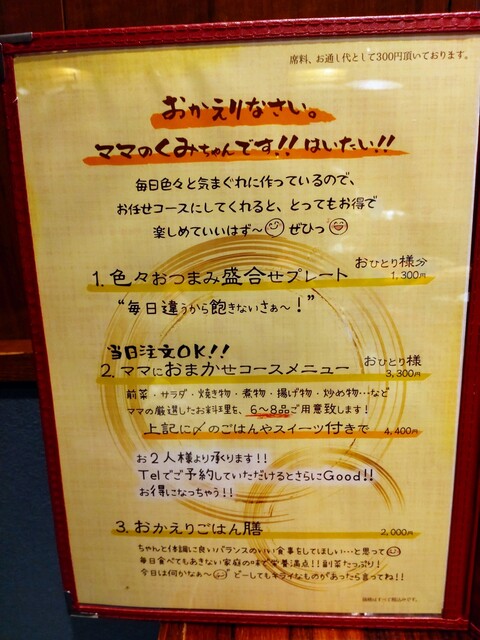 席料、お通し代として300円頂いております。
おかえりなさい。
ママのくみちゃんです!! はいたい!!
毎日色々と気まぐれに作っているので、
お任せコースにしてくれると、とってもお得で
楽しめていいはず〜 ぜひっ
おひとり様分
1. 色々おつまみ盛合せプレート 1,300円
“毎日違うから飽きないさぁ〜！”
当日注文OK!!
おひとり様
2. ママにおまかせコースメニュー 3,300円
前菜・サラダ・焼き物・煮物・揚げ物・炒め物…など
ママの厳選したお料理を、6〜8品ご用意致します！
上記に〆のごはんやスイーツ付きで 4,400円
お２人様より承ります!!
Telでご予約していただけるとさらにGood!!
お得になっちゃう!!
3. おかえりごはん膳 2,000円
ちゃんと体調に良いバランスのいい食事をしてほしい…と思って
毎日食べてもあきない家庭の味で栄養満点!! 副菜たっぷり！
今日は何かなぁ〜 どーしてもキライなものがあったら言ってね!!
価格はすべて税込みです。